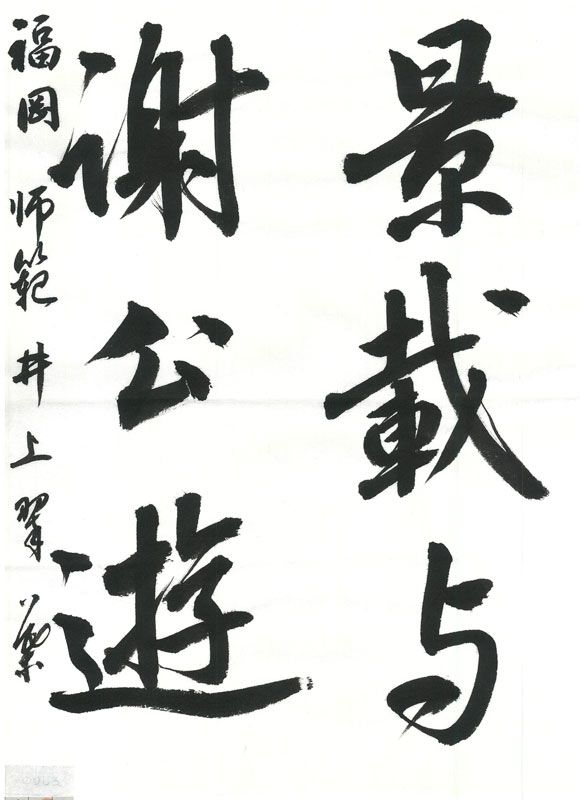 景載与
謝公遊
福岡 师範 井上翠葉